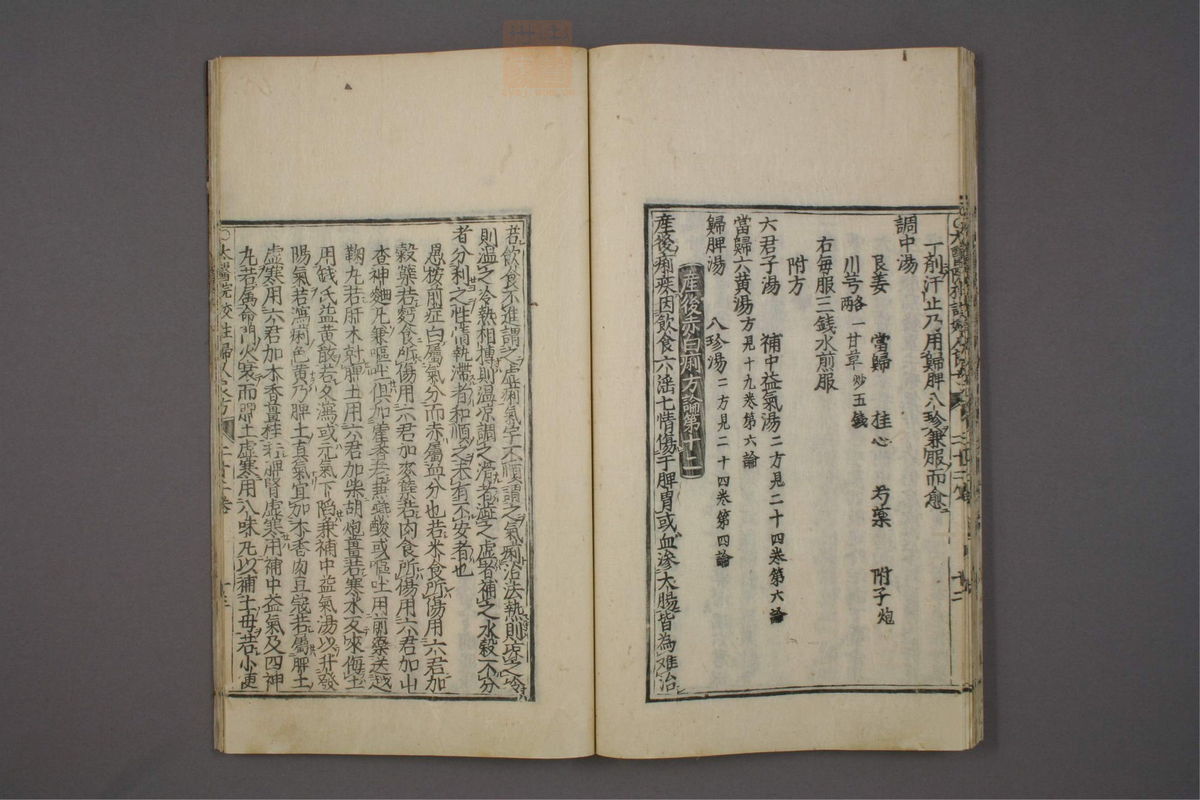 一剤汗止乃用歸脾八珍兼服而愈
調中湯
良姜 當歸 桂心 芍薬 附子炮
川芎各一兩 甘草炒五錢
右毎服三錢水煎服
附方
六君子湯 補中益氣湯二方見二十四卷第六論
當歸六黄湯方見十九卷第六論
歸脾湯 八珍湯二方見二十四卷第四論
産後赤白痢方論第十二
産後痢疾因飲食六淫七情傷于脾胃或血滲大腸皆為难治
若飲食不進謂之虚痢氣宇不順謂之氣痢治法熱則涼之冷
則温之冷熱相搏則温凉調之滑者澁之虚者補之水穀不分
者分利之性情執滞者和順之未有不安者也
愚按前症白屬氣分而赤屬血分也若米食所傷用六君加
穀蘖若麪食所傷用六君加麥蘖若肉食所傷用六君加山
查神麯凡兼嘔吐俱加藿香若兼嚥酸或嘔吐用前藥送越
鞠丸若肝木尅脾土用六君加柴胡炮薑若寒水反來侮土
用錢氏益黄散若久瀉或元氣下陷兼補中益氣湯以升發
陽氣若瀉痢色黄乃脾土真氣宜加木香肉豆寇若屬脾土
虚寒用六君加木香薑桂若脾腎虚寒用補中益氣及四神
丸若属命門火衰而脾土虚寒用八味丸以補土母若小便
太醫院校註婦人良方 二十二卷 十三